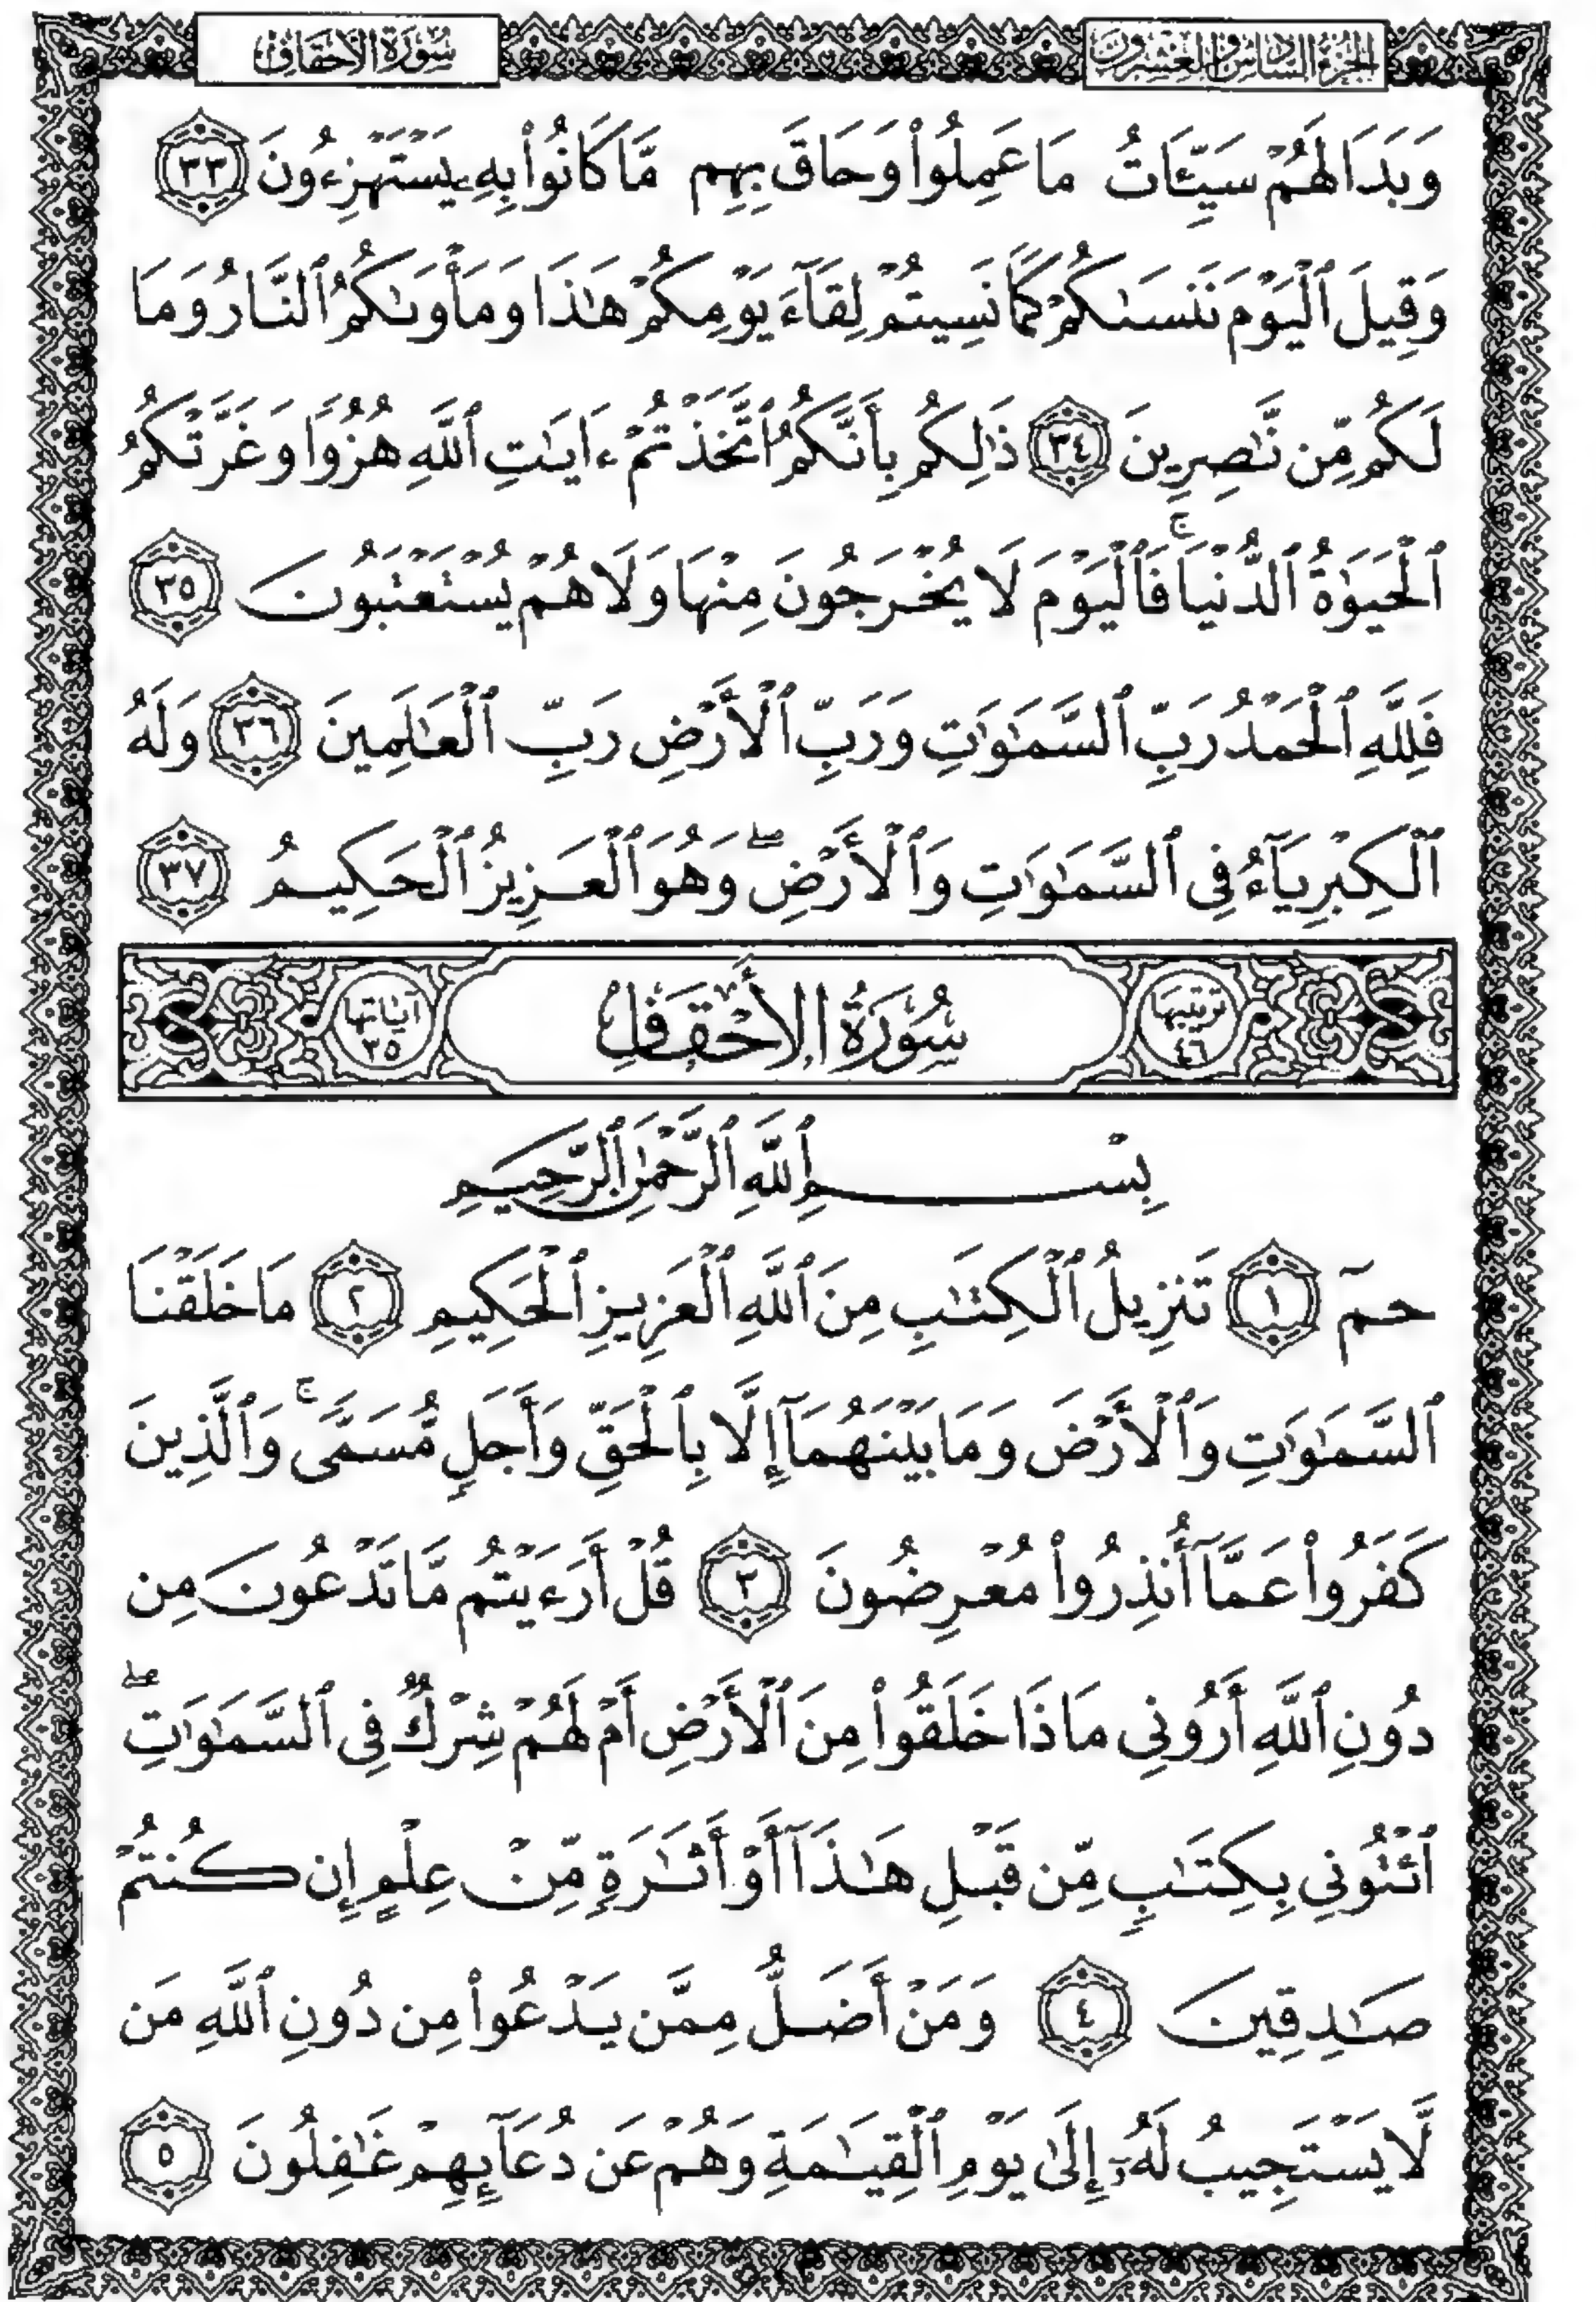 الجزء السادس والعشرون
سورة الأحقاف
وَبَدَا لَهُمْ سَيِّـَٔاتُ مَا عَمِلُوا۟ وَحَاقَ بِهِم مَّا كَانُوا۟ بِهِۦ يَسْتَهْزِءُونَ ٣٣
وَقِيلَ ٱلْيَوْمَ نَنسَىٰكُمْ كَمَا نَسِيتُمْ لِقَآءَ يَوْمِكُمْ هَـٰذَا وَمَأْوَىٰكُمُ ٱلنَّارُ وَمَا
لَكُم مِّن نَّـٰصِرِينَ ٣٤ ذَٰلِكُم بِأَنَّكُمُ ٱتَّخَذْتُمْ ءَايَـٰتِ ٱللَّهِ هُزُوًا وَغَرَّتْكُمُ
ٱلْحَيَوٰةُ ٱلدُّنْيَا ۚ فَٱلْيَوْمَ لَا يُخْرَجُونَ مِنْهَا وَلَا هُمْ يُسْتَعْتَبُونَ ٣٥
فَلِلَّهِ ٱلْحَمْدُ رَبِّ ٱلسَّمَـٰوَٰتِ وَرَبِّ ٱلْأَرْضِ رَبِّ ٱلْعَـٰلَمِينَ ٣٦ وَلَهُ
ٱلْكِبْرِيَآءُ فِى ٱلسَّمَـٰوَٰتِ وَٱلْأَرْضِ ۖ وَهُوَ ٱلْعَزِيزُ ٱلْحَكِيمُ ٣٧
ترتيبها ٤٦ سُورَةُ الأَحْقَافِ آياتها ٣٥
بِسْمِ ٱللَّهِ ٱلرَّحْمَـٰنِ ٱلرَّحِيمِ
حمٓ ١ تَنزِيلُ ٱلْكِتَـٰبِ مِنَ ٱللَّهِ ٱلْعَزِيزِ ٱلْحَكِيمِ ٢ مَا خَلَقْنَا
ٱلسَّمَـٰوَٰتِ وَٱلْأَرْضَ وَمَا بَيْنَهُمَآ إِلَّا بِٱلْحَقِّ وَأَجَلٍ مُّسَمًّى ۚ وَٱلَّذِينَ
كَفَرُوا۟ عَمَّآ أُنذِرُوا۟ مُعْرِضُونَ ٣ قُلْ أَرَءَيْتُم مَّا تَدْعُونَ مِن
دُونِ ٱللَّهِ أَرُونِى مَاذَا خَلَقُوا۟ مِنَ ٱلْأَرْضِ أَمْ لَهُمْ شِرْكٌ فِى ٱلسَّمَـٰوَٰتِ ۖ
ٱئْتُونِى بِكِتَـٰبٍ مِّن قَبْلِ هَـٰذَآ أَوْ أَثَـٰرَةٍ مِّنْ عِلْمٍ إِن كُنتُمْ
صَـٰدِقِينَ ٤ وَمَنْ أَضَلُّ مِمَّن يَدْعُوا۟ مِن دُونِ ٱللَّهِ مَن
لَّا يَسْتَجِيبُ لَهُۥٓ إِلَىٰ يَوْمِ ٱلْقِيَـٰمَةِ وَهُمْ عَن دُعَآئِهِمْ غَـٰفِلُونَ ٥